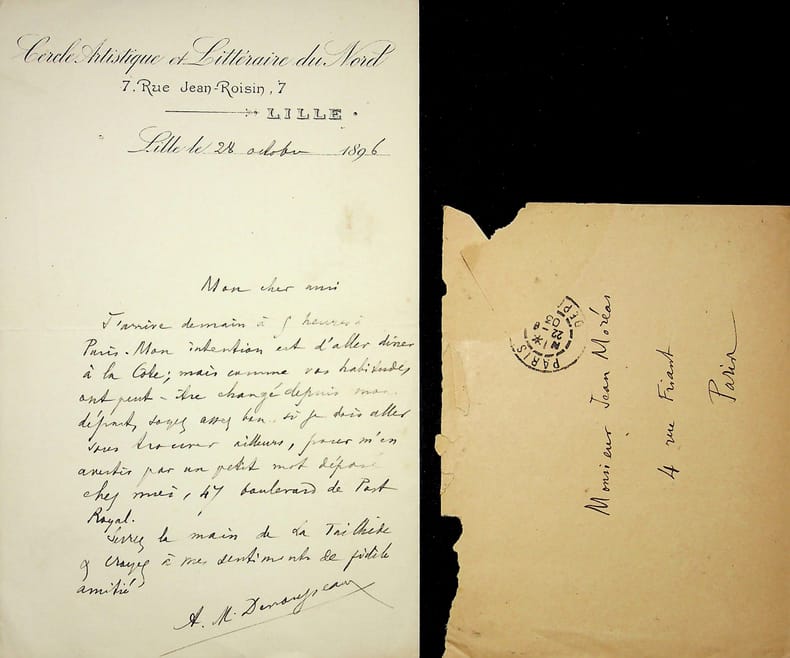 Cercle Artistique et Littéraire du Nord
7. Rue Jean-Roisin, 7
LILLE.
Lille le 28 octobre 1896
Mon cher ami
J'arrive demain à 5 heures à
Paris. Mon intention est d'aller dîner
à la Cote; mais comme vos habitudes
ont peut-être changé depuis mon
départ, soyez assez bon si je dois aller
vous trouver ailleurs, pour m'en
avertir par un petit mot déposé
chez moi, 47 boulevard de Port
Royal.
Serrez la main de La Tailhède
& croyez à mes sentiments de fidèle
amitié
A. M. Desrousseaux
PARIS
Monsieur Jean Moréas
4 rue Friant
Paris